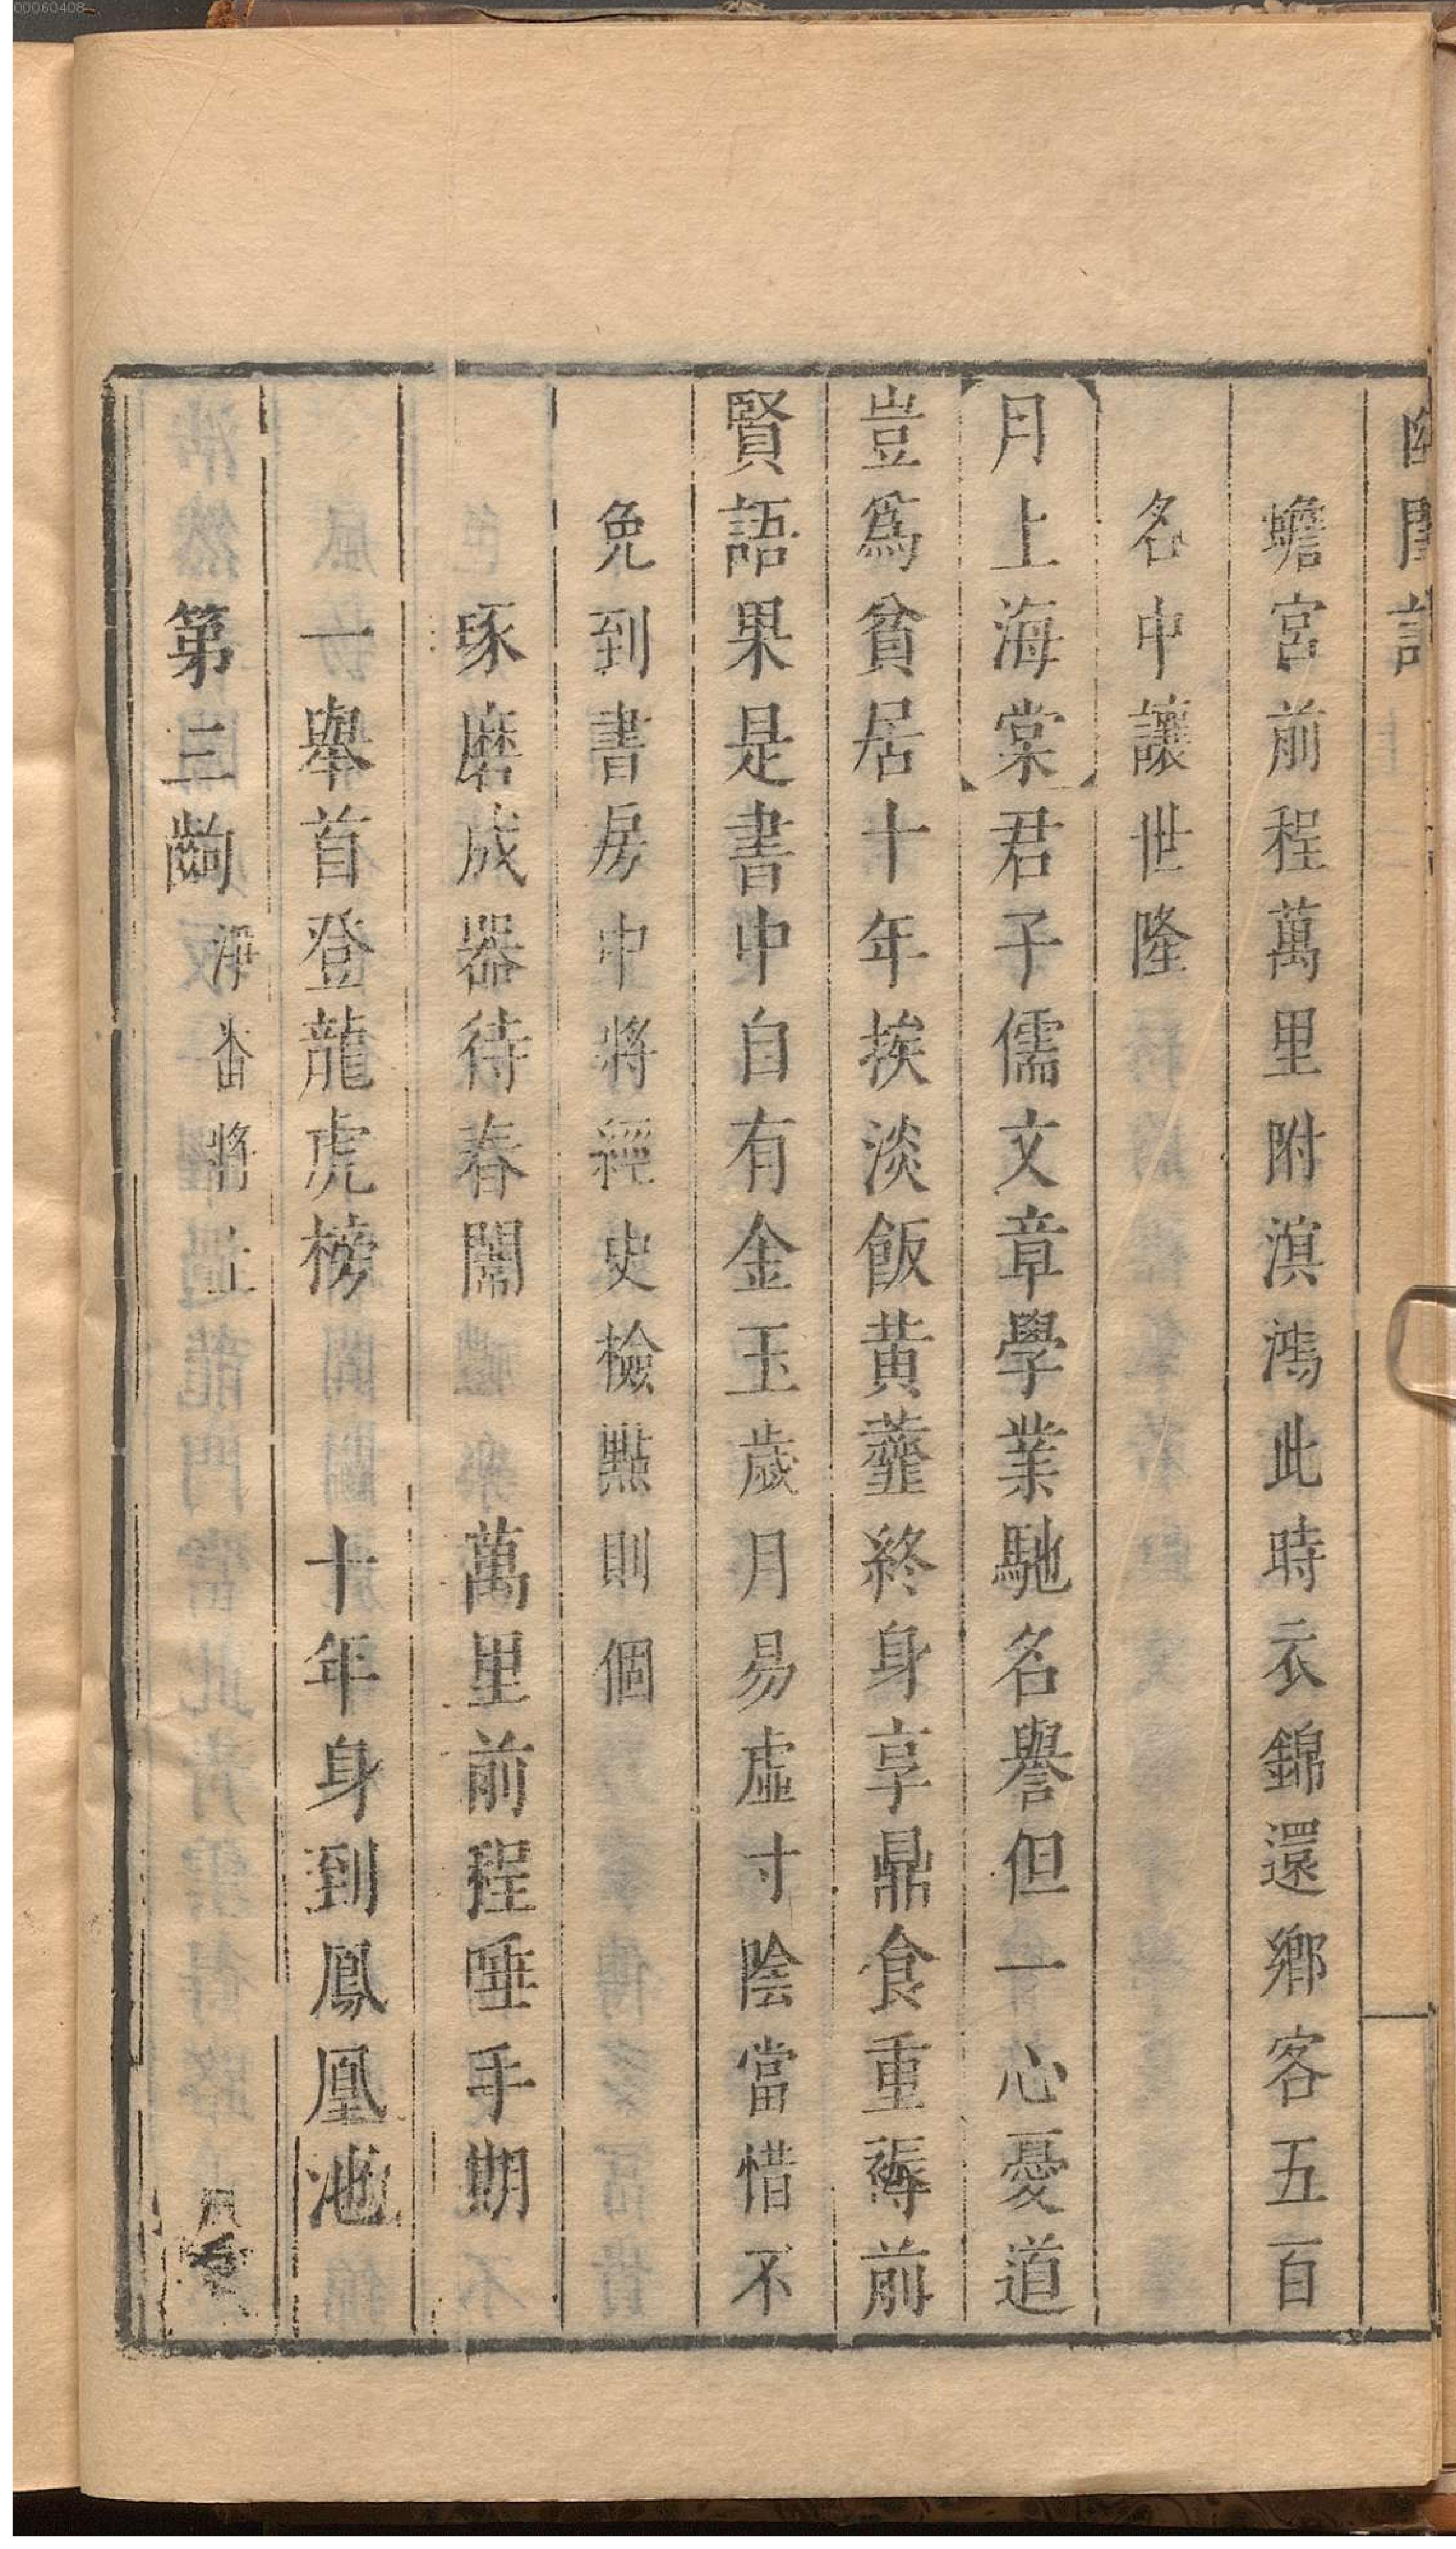 00060408
蟾宮前程萬里附溟鴻此時衣錦還鄉客五百
名中讓世隆
月上海棠君子儒文章學業馳名譽但一心憂道
豈爲貧居十年挨淡飯黃虀終身享鼎食重裀前
賢語果是書中自有金玉歲月易虛寸陰當惜不
免到書房中將經史檢㸃則個
琢磨成器待春闈 萬里前程唾手期
一舉首登龍虎榜 十年身到鳳凰池
第三齣 淨番將上